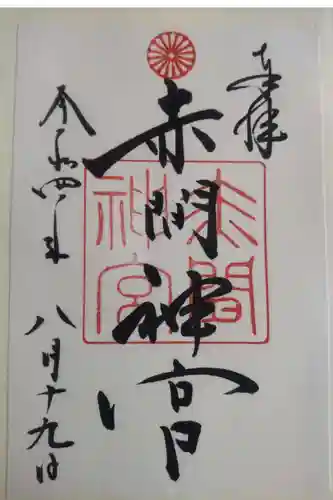 奉拝
赤間神宮
赤間
神宮
令和四年
八月十九日